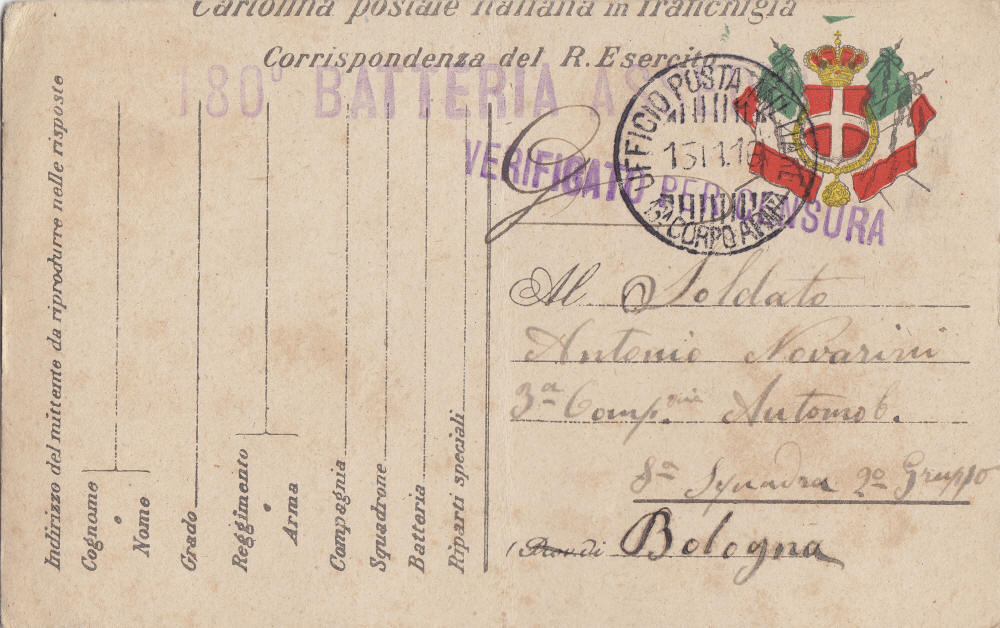 Cartolina postale italiana in franchigia
Corrispondenza del R. Esercito
180° BATTERIA
VERIFICATO PER CENSURA
UFFICIO POSTA MILITARE
CORPO ARMATA
Indirizzo del mittente da riprodurre nelle risposte
Cognome
e
Nome
Grado
Reggimento
o
Arma
Compagnia
Squadrone
Batteria
Riparti speciali
Al Soldato
Antonio Novarini
3ª Comp.nia Automob.
8ª Squadra 2º Gruppo
Bologna